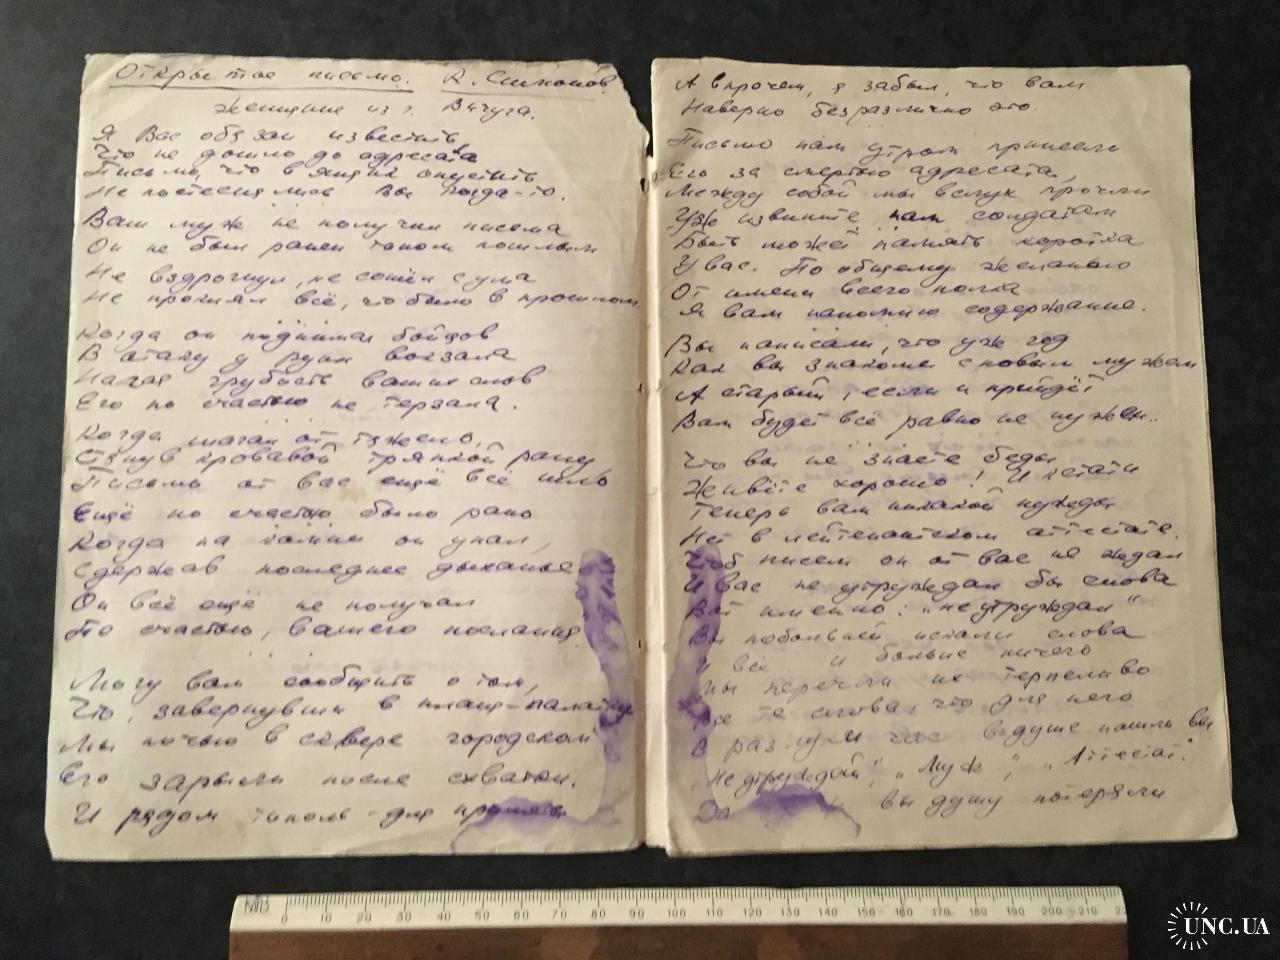 Открытое письмо. К. Симонов
Женщине из г. Вичуга.
Я Вас обязан известить
Что не дошло до адресата
Письмо, что в ящик опустить
Не постеснялись Вы когда-то.
Ваш муж не получил письма
Он не был ранен словом пошлым
Не вздрогнул, не сошёл с ума
Не проклял всё, что было в прошлом
Когда он поднимал бойцов
В атаку у руин вокзала
Тупая грубость ваших слов
Его по счастью не терзала.
Когда шагал он тяжело,
Стянув кровавой тряпкой рану
Письмо от вас ещё всё шло
Ещё по счастью было рано
Когда на камни он упал,
Сдержав последнее дыханье
Он всё ещё не получал
По счастью, вашего посланья
Могу вам сообщить о том,
Что, завернувши в плащ-палатку
Мы ночью в сквере городском
Его зарыли после схватки.
И рядом тополь - для приметы
А впрочем, я забыл, что вам
Наверно безразлично это.
Письмо нам утром принесли
Его за смертью адресата,
Между собой мы вслух прочли
Уж извините нам солдатам
Быть может память коротка
У вас. По общему желанью
От имени всего полка
Я вам напомню содержание.
Вы написали, что уж год
Как вы знакомы с новым мужем
А старый, если и придёт
Вам будет всё равно не нужен..
Что вы не знаете беды
Живёте хорошо! И кстати
Теперь вам никакой нужды
Нет в лейтенантском аттестате.
Чтоб писем он от вас не ждал
И вас не утруждал бы снова
Вот именно: „не утруждал"
Вы побольней искали слова
И всё и больше ничего
Мы перечли их терпеливо
Все те слова, что для него
В разлуки час в душе нашли вы
„Не утруждай", „Муж", „Аттестат".
Да вы душу потеряли
MD
0 10 20 30 40 50 60 70 80 90 100 110 120 130 140 150 160 170 180 190 200 210
UNC.UA